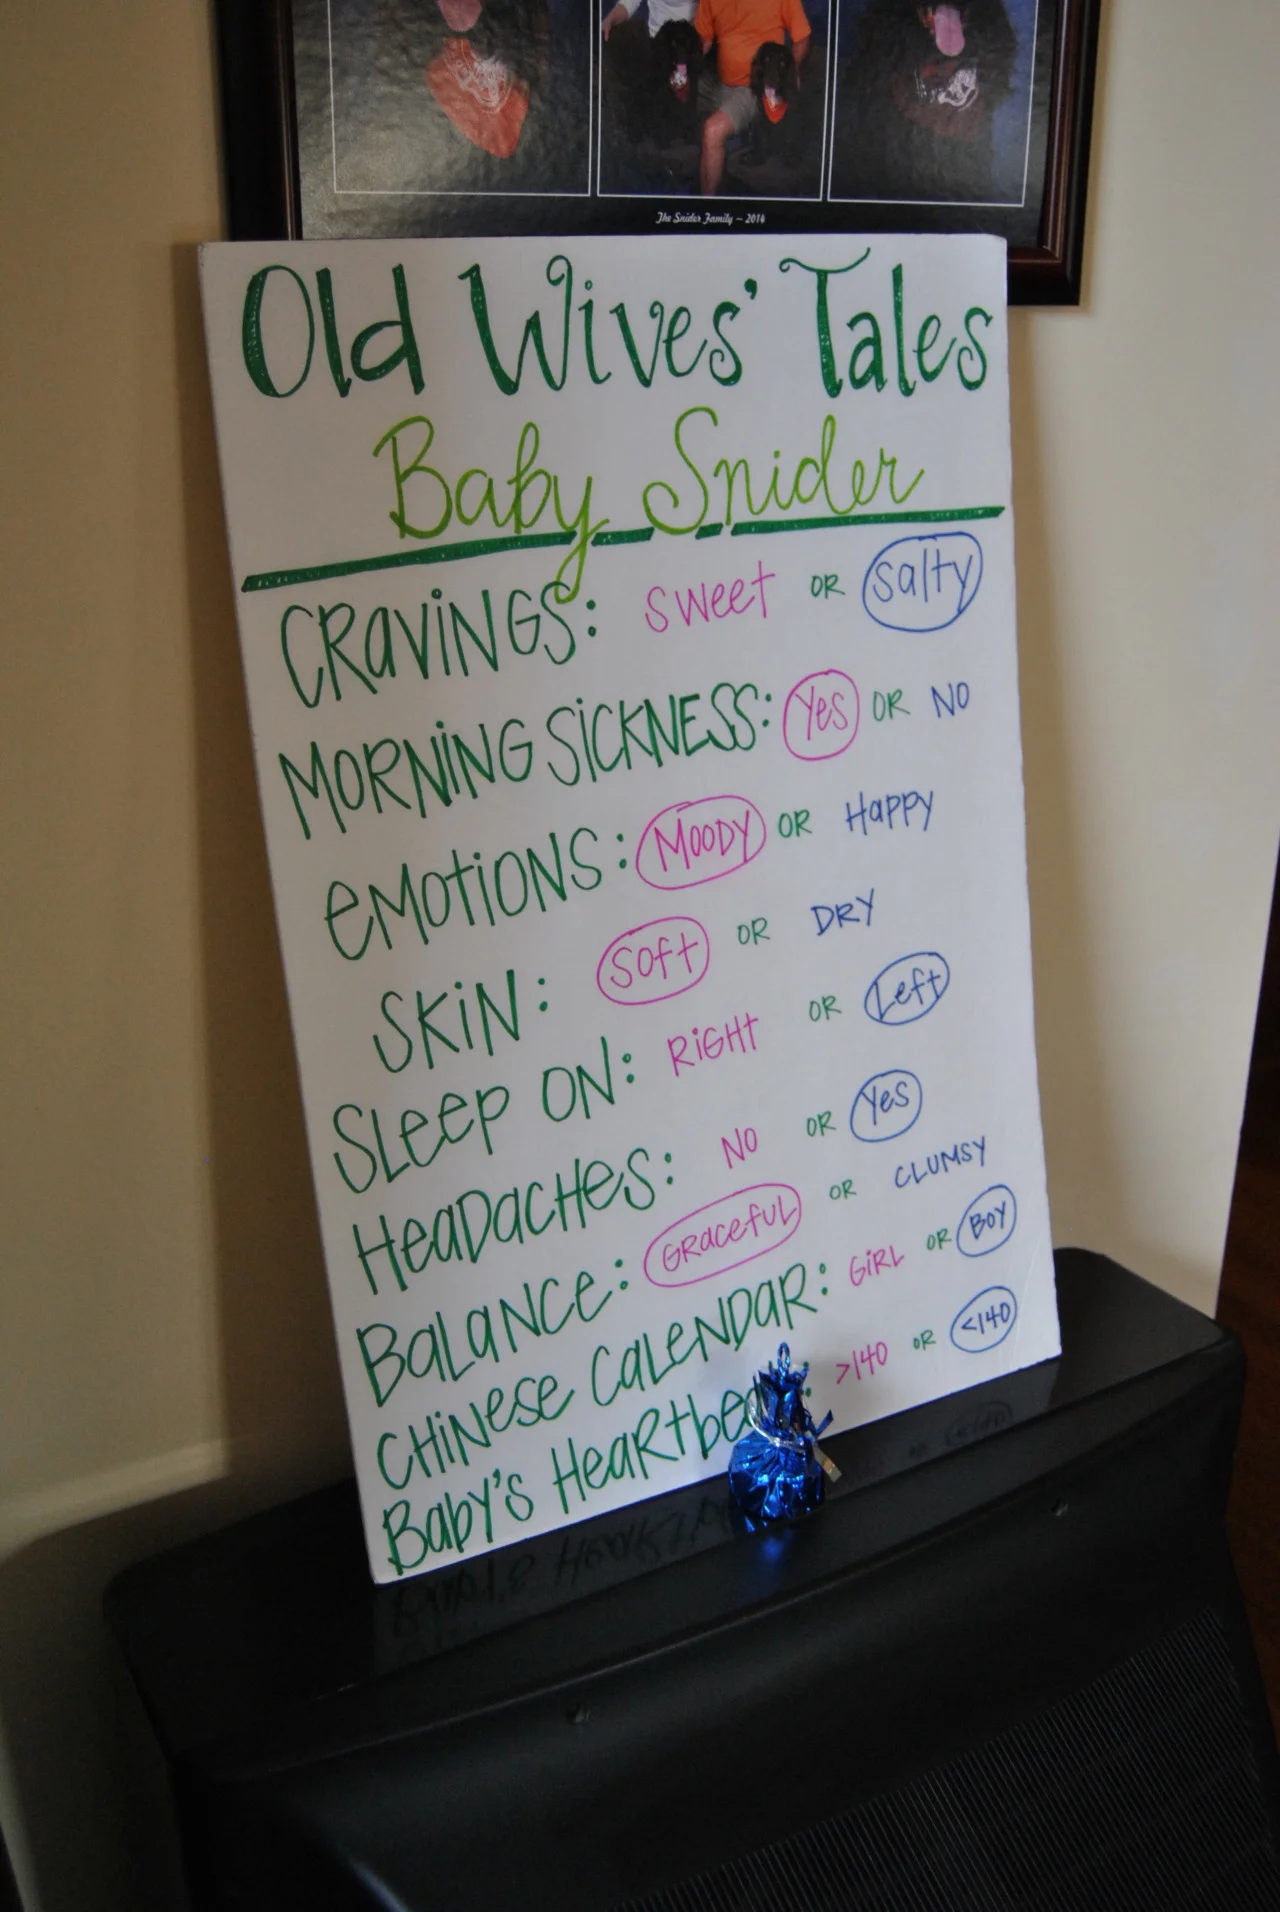 The Snider Family - 2014
Old Wives' Tales
Baby Snider
CRAViNGS: sweet OR salty
MORNiNG SiCKNESS: Yes OR NO
eMOtiONS: MOODY OR HAPPY
SKiN: SOft OR DRY
SLeep ON: RiGHt OR Left
HeaDacHes: NO OR Yes
BaLaNCe: GRacefuL OR CLUMSY
CHiNese CaLeNDaR: GiRL OR BOY
Baby's HeaRtbea : >140 OR <140